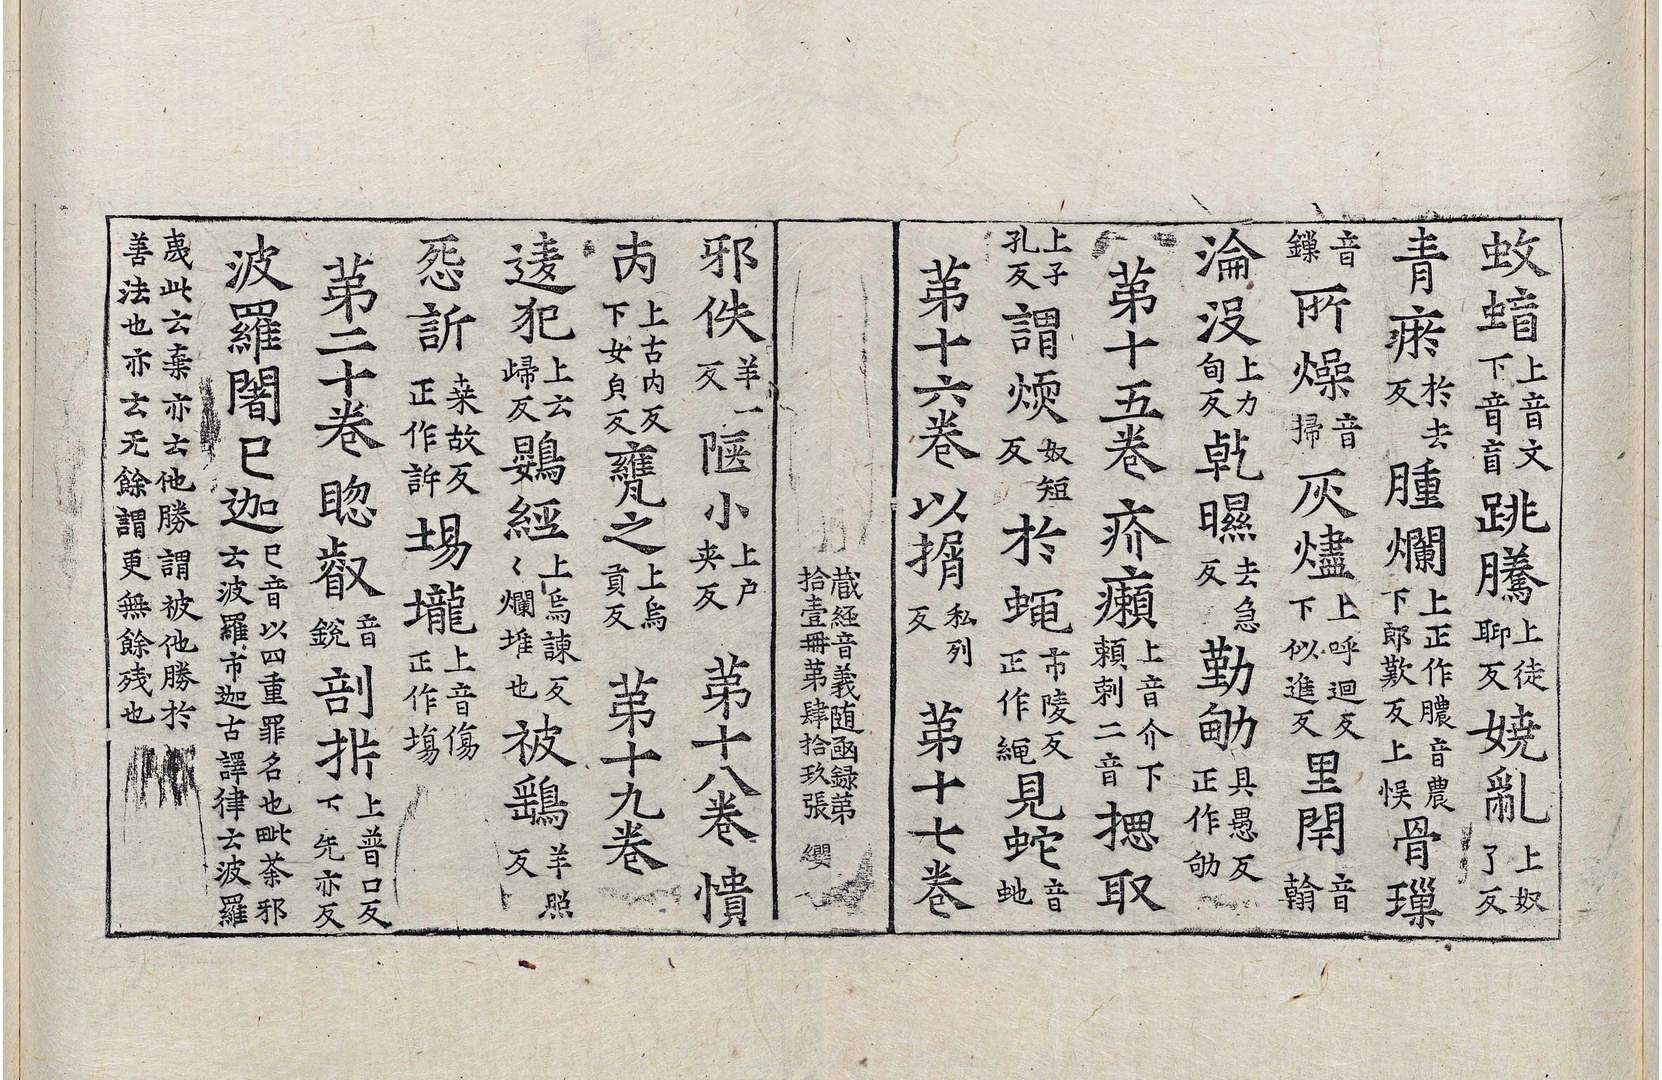 蚊蟁上音文下音盲跳騰上徒聊反嬈亂上奴了反
青瘀於去反腫爛上正作膿音農下郎歎反上悮骨璅
音鏁所燥音掃灰燼上呼迴反下似進反里閈音翰
淪没上力旬反乾㬤去急反勤劬具愚反正作劬
苐十五卷疥癩上音介下賴剌二音揌取
上子孔反謂煗奴短反於蝇市陵反正作繩見虵音虵
苐十六卷以揟私列反苐十七卷
藏經音義随函録苐拾壹冊苐肆拾玖張 纓
邪佚羊一反陿小上户夹反苐十八卷憒
吶上古内反下女負反甕之上烏貢反苐十九卷
逶犯上云歸反鷃經上烏諫反〻爛堆也被鷂羊照反
惌訴桒故反正作訴埸壠上音傷正作塲
苐二十卷聦叡音銳剖㭊上普口反下先亦反
波羅闍巳迦巳音以四重罪名也毗荼邪云波羅市迦古譯律云波羅
夷此云棄亦云他勝謂被他勝於善法也亦云无餘謂更無餘残也